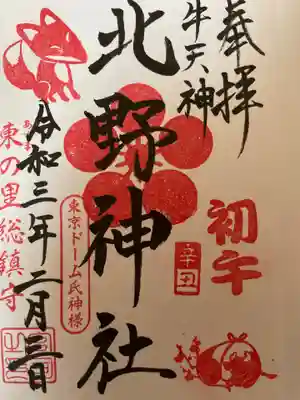 奉拝
牛天神
北野神社
初午
辛丑
東京ドーム氏神様
令和三年二月三日
東の里総鎮守